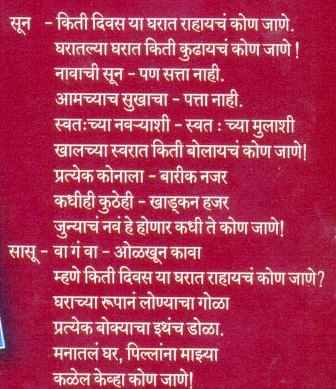 सून - किती दिवस या घरात राहायचं कोण जाणे.
घरातल्या घरात किती कुढायचं कोण जाणे !
नावाची सून - पण सत्ता नाही.
आमच्याच सुखाचा - पत्ता नाही.
स्वतःच्या नवऱ्याशी - स्वत : च्या मुलाशी
खालच्या स्वरात किती बोलायचं कोण जाणे!
प्रत्येक कोनाला - बारीक नजर
कधीही कुठेही - खाड्कन हजर
जुन्याचं नवं हे होणार कधी ते कोण जाणे!
सासू - वा गं वा - ओळखून कावा
म्हणे किती दिवस या घरात राहायचं कोण जाणे?
घराच्या रूपानं लोण्याचा गोळा
प्रत्येक बोक्याचा इथंच डोळा.
मनातलं घर, पिल्लांना माझ्या
कळेल केव्हा कोण जाणे!